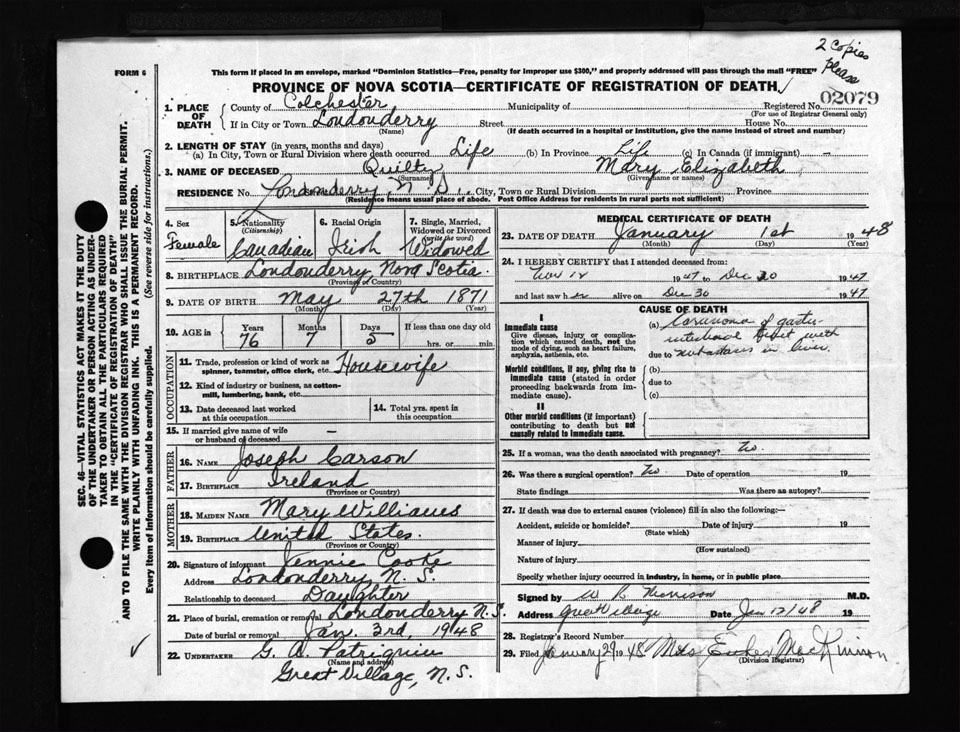 2 Copies
please
FORM 6
This form if placed in an envelope, marked "Dominion Statistics—Free, penalty for improper use $300," and properly addressed will pass through the mail "FREE"
PROVINCE OF NOVA SCOTIA—CERTIFICATE OF REGISTRATION OF DEATH
02079
1. PLACE OF DEATH
County of Colchester Municipality of Registered No.
(For use of Registrar General only)
If in City or Town Londonderry Street House No.
(Name) (If death occurred in a hospital or institution, give the name instead of street and number)
2. LENGTH OF STAY (in years, months and days)
(a) In City, Town or Rural Division where death occurred Life (b) In Province Life (c) In Canada (if immigrant) —
3. NAME OF DECEASED Quilty Mary Elizabeth
(Surname) (Given name or names)
RESIDENCE No. Londonderry N.S. City, Town or Rural Division Province
(Residence means usual place of abode. Post Office Address for residents in rural parts not sufficient)
4. Sex
Female
5. Nationality
(Citizenship)
Canadian
6. Racial Origin
Irish
7. Single, Married, Widowed or Divorced
(write the word)
Widowed
8. BIRTHPLACE Londonderry, Nova Scotia.
(Province or Country)
9. DATE OF BIRTH May 27th 1871
(Month) (Day) (Year)
10. AGE in Years Months Days If less than one day old
76 7 5 hrs. or min.
OCCUPATION
11. Trade, profession or kind of work as spinner, teamster, office clerk, etc. Housewife
12. Kind of industry or business, as cotton-mill, lumbering, bank, etc.
13. Date deceased last worked at this occupation
14. Total yrs. spent in this occupation
15. If married give name of wife or husband of deceased —
FATHER
16. NAME Joseph Carson
17. BIRTHPLACE Ireland
(Province or Country)
MOTHER
18. MAIDEN NAME Mary Williams
19. BIRTHPLACE Unith States.
(Province or Country)
20. Signature of informant Jennie Cooke
Address Londonderry, N.S.
Relationship to deceased Daughter
21. Place of burial, cremation or removal Londonderry N.S.
Date of burial or removal Jan. 3rd, 1948
22. UNDERTAKER G. A. Patriquin
(Name and address)
Great Village, N.S.
MEDICAL CERTIFICATE OF DEATH
23. DATE OF DEATH January 1st 1948
(Month) (Day) (Year)
24. I HEREBY CERTIFY that I attended deceased from:
Nov 12 1947 to Dec 30 1947
and last saw her alive on Dec 30 1947
CAUSE OF DEATH
I
Immediate cause
Give disease, injury or complication which caused death, not the mode of dying, such as heart failure, asphyxia, asthenia, etc.
(a) Carcinoma of gastro-
intestinal tract with
due to metastases in liver
Morbid conditions, if any, giving rise to immediate cause (stated in order proceeding backwards from immediate cause).
(b)
due to
(c)
II
Other morbid conditions (if important) contributing to death but not causally related to immediate cause.
25. If a woman, was the death associated with pregnancy? No.
26. Was there a surgical operation? No Date of operation 19
State findings Was there an autopsy?
27. If death was due to external causes (violence) fill in also the following:—
Accident, suicide or homicide? Date of injury 19
(State which)
Manner of injury
(How sustained)
Nature of injury
Specify whether injury occurred in industry, in home, or in public place
Signed by W R M.D.
Address Great Village Date Jan 12/48 19
28. Registrar's Record Number
29. Filed January 29 1948 Mrs MacKinnon
(Division Registrar)
SEC. 46—VITAL STATISTICS ACT MAKES IT THE DUTY
OF THE UNDERTAKER OR PERSON ACTING AS UNDER-
TAKER TO OBTAIN ALL THE PARTICULARS REQUIRED
IN THE "CERTIFICATE OF REGISTRATION OF DEATH"
AND TO FILE THE SAME WITH THE DIVISION REGISTRAR WHO SHALL ISSUE THE BURIAL PERMIT.
WRITE PLAINLY WITH UNFADING INK. THIS IS A PERMANENT RECORD.
Every item of information should be carefully supplied. (See reverse side for instructions.)